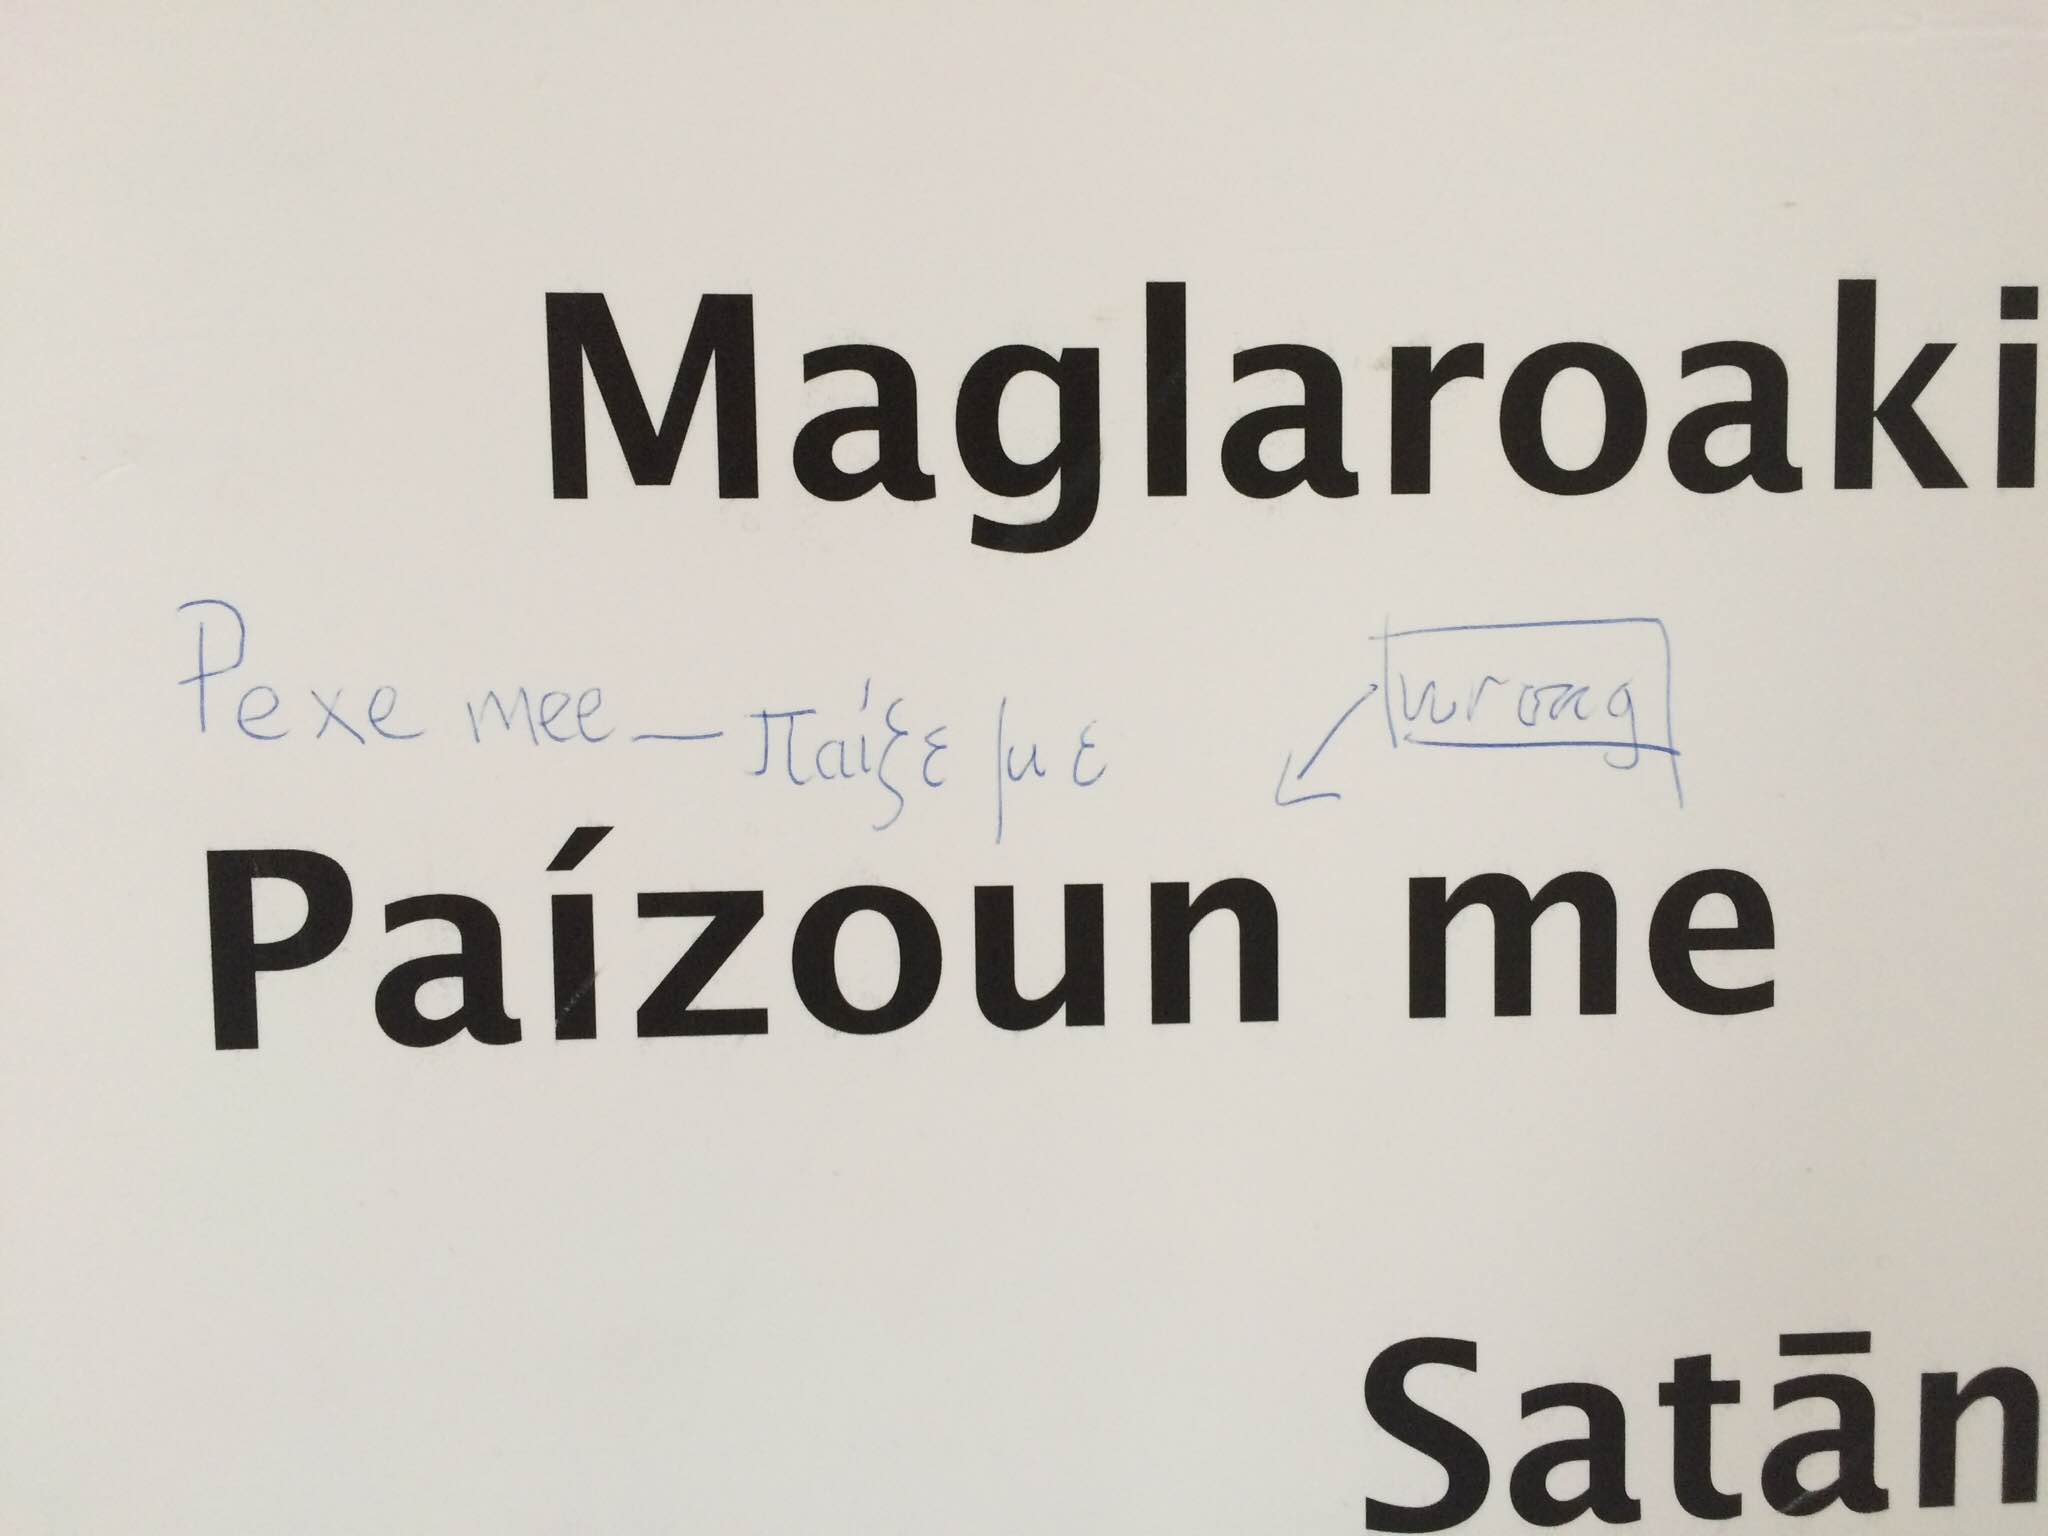 Maglaroaki
Pexe mee — παίξε με
wrong
Paízoun me
Satān